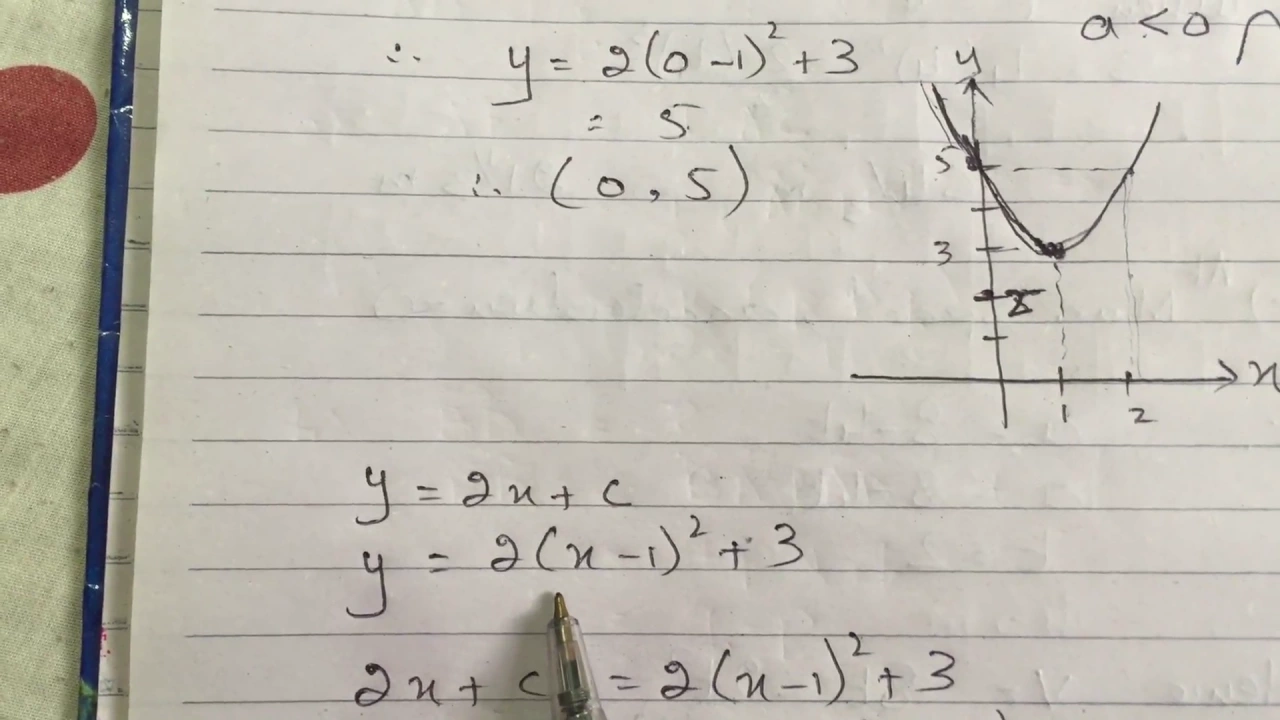 a < 0
∴ y = 2(0 - 1)² + 3
= 5
∴ (0, 5)
y
5
3
x
1 2
y = 2x + c
y = 2(x - 1)² + 3
2x + c = 2(x - 1)² + 3